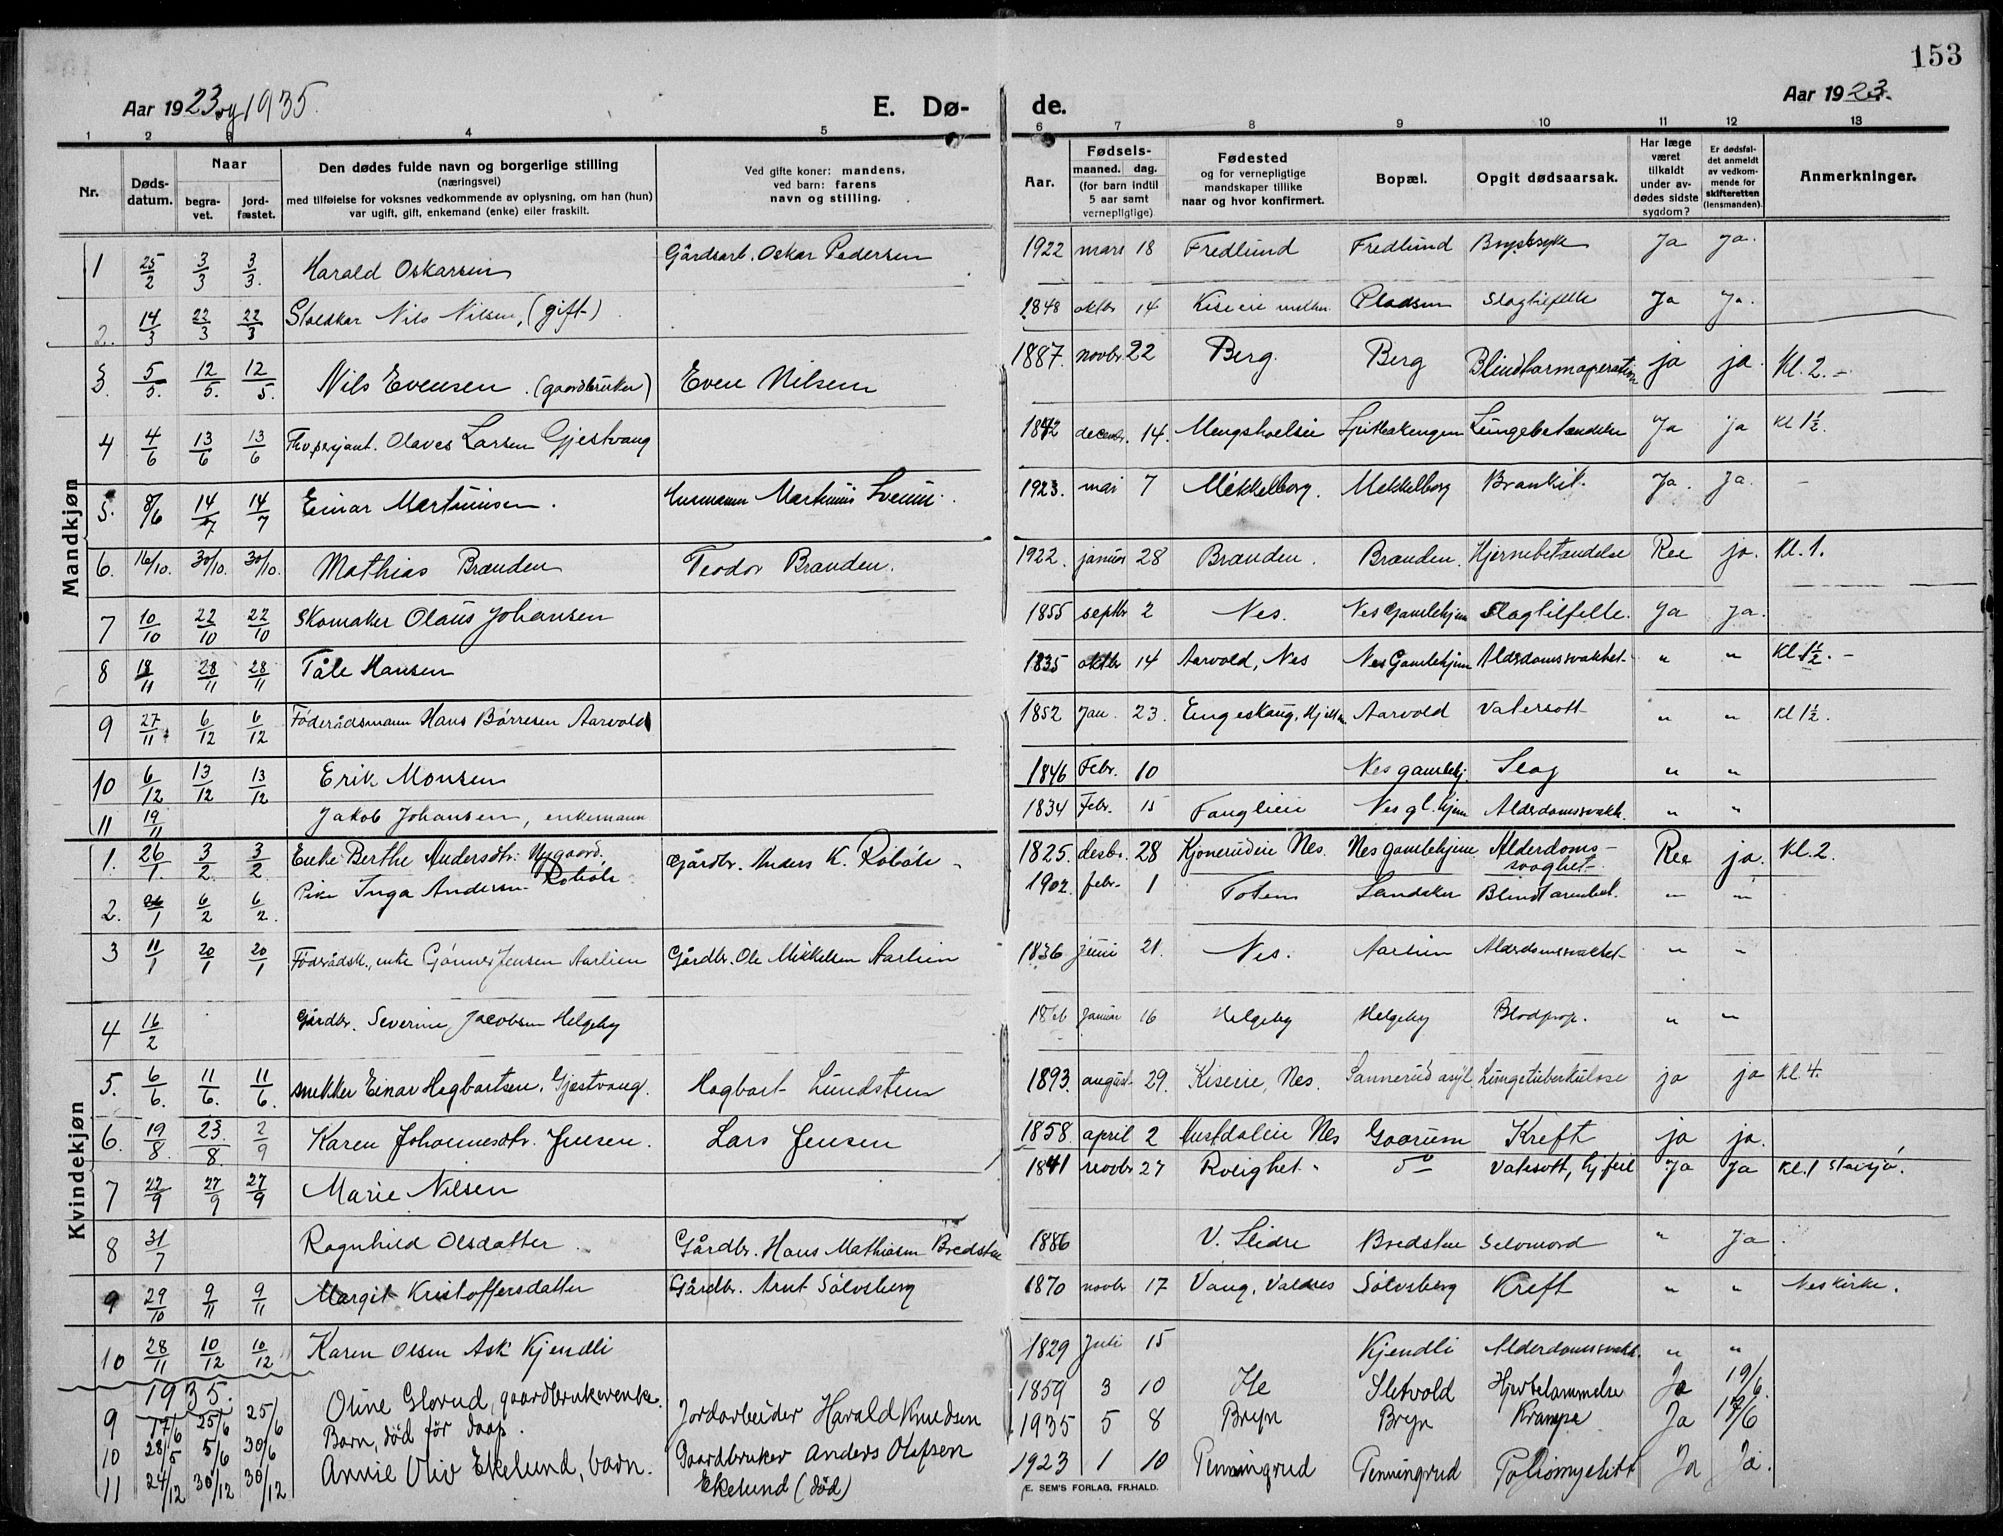 153
Aar 1923 og 1935.
E. Dø- de.
Aar 1923.
1 2 3 4 5 6 7 8 9 10 11 12 13
Nr. Døds-datum. Naar begra-vet. jord-fæstet. Den dødes fulde navn og borgerlige stilling (næringsvei) med tilføielse for voksnes vedkommende av oplysning, om han (hun) var ugift, gift, enkemand (enke) eller fraskilt. Ved gifte koner: mandens, ved barn: farens navn og stilling. Aar. Fødsels- maaned. dag. (for barn indtil 5 aar samt vernepligtige) Fødested og for vernepligtige mandskaper tillike naar og hvor konfirmert. Bopæl. Opgit dødsaarsak. Har læge været tilkaldt under av-dødes sidste sygdom? Er dødsfal-det anmeldt av vedkom-mende for skifteretten (lensmanden). Anmerkninger.
Mandkjøn
1 25/2 3/3 3/3. Harald Oskarsen Gårdsarb. Oskar Pedersen 1922 mars 18 Fredlund Fredlund Brystsyk Ja ja.
2. 14/3 22/3 22/3 Nils Nilsen, (gift) 1848 oktbr 14 Kiseie Pladsen Slagtilfelle Ja Ja.
3. 5/5. 12/5. 12/5. Nils Evensen. (gaardbruker) Even Nilsen 1887. novbr. 22 Berg. Berg Blindtarmoperation ja ja. Kl. 2. –
4 4/6 13/6 13/6 Olaves Larsen Gjestvang 1842 decembr. 14. Mengshoelseie Lungebetændelse Ja ja Kl 1½.
5. 8/6 14/7 14/7 Einar Martinusen. Husmann Martinus Sveum. 1923. mai 7 Mekkelborg. Mekkelborg Bronkit. Ja. Ja. –
6. 16/10. 30/10. 30/10. Mathias Brænden Teodor Brænden. 1922. januar 28 Brænden. Brænden. Hjernebetændelse Nei jo. Kl. 1.
7 10/10 22/10 22/10 Skomaker Olaus Johansen 1855 septbr 2 Nes. Nes Gamlehjem Slagtilfelle. Ja Ja.
8 18/11 28/11 28/11 Tåle Hansen 1835 oktbr 14 Aarvold, Nes Nes Gamlehjem Aldrdomssvakhet „ „ Kl 1½. –
9 27/11 6/12 6/12 Føderådsmann Hans Børresen Aarvold 1852 Jan. 23. Engeskaug, Aarvold Vatersott „ „ Kl 1½.
10 6/12 13/12 13/12 Erik Monsen 1846 Febr. 10 Nes gamlehj. Slag „ „
11 19/11 Jakob Johansen, enkemann 1834 Febr. 15 Fanglieie Nes gl. hjem Aldrdomssvakh. „ „
Kvindekjøn
1. 26/1 3/2. 3/2. Enke Berthe Andersdtr. Nygaard. Gårdbr. Anders K. 1825. desbr. 28 Kjonerudeie Nes. Nes gamlehjem Alderdoms-svaghet Nei ja. Kl. 2.
2. 26/1 6/2 6/2. Pike Inga Andersen 1902. febr. 1 Toten Landåker Blindtarmbet. – –
3 11/1 20/1 20/1 Føderådsk., enke Gønner Jensen Aarlien Gårdbr. Ole Mikkelsen Aarlien 1836 juni 21. Nes. Aarlien Aldrdomssvakhet „ „
4 16/2 Gårdbr. Severine Jacobsen Helgeby Januar 16 Helgeby Helgeby Blodprop. „ „
5. 6/6. 11/6. 11/6. snekker Einar Hagbartsen, Gjestvang. Hagbart Lundsten 1893. august 29. Kiseie, Nes. Sannerud asyl Lungetuberkulose ja ja Kl. 4.
6. 19/8. 23./8. 2/9 Karen Johannesdtr. Jensen. Lars Jensen 1858. april 2 Nes Gaarum Kreft ja ja.
7 22/9 27/9 27/9 Marie Nilsen 1841 novbr 27 Rolighet Do Vatersott, hj. feil Ja Ja Kl. 1 Stavsjø.
8 31/7 Ragnhild Olsdatter Gårdbr. Hans Mathiasen Bredsten 1886 V. Slidre Bredsten Selvmord „ Ja.
9 29/10 9/11 9/11 Margit Kristoffersdatter Gårdbr. Arnt Sølvsberg 1870 novbr 17 Vang, Valdres Sølvsberg Kreft „ „ Nes kirke.
10 28/11 10/12 10/12 Karen Olsen Ask Kjendli 1829 Juli 15 Kjendli Alderdomssvakh. „ „
1935.
9 17/6 25/6 25/6 Oline Glorud, gaardbrukerenke. 1859 3 10 Sletvold Hjertelammelse Ja 19/6.
10 28/5 5/6 30/6 Barn, død før daap. Jordarbeider Harald Knudsen 1935 5 8 Bryn Bryn Krampe Ja 17/6
11 24/12 30/12 30/12 Annie Oliv Ekelund, barn. Gaardbruker Anders Olafsen Ekelund (død) 1923 1 10 Penningrud Penningrud Poliomyelitt Ja Ja.
E. SEM'S FORLAG, FR.HALD.